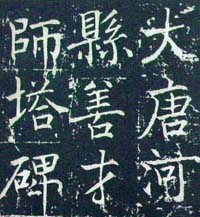 大唐河
縣善才
師塔碑